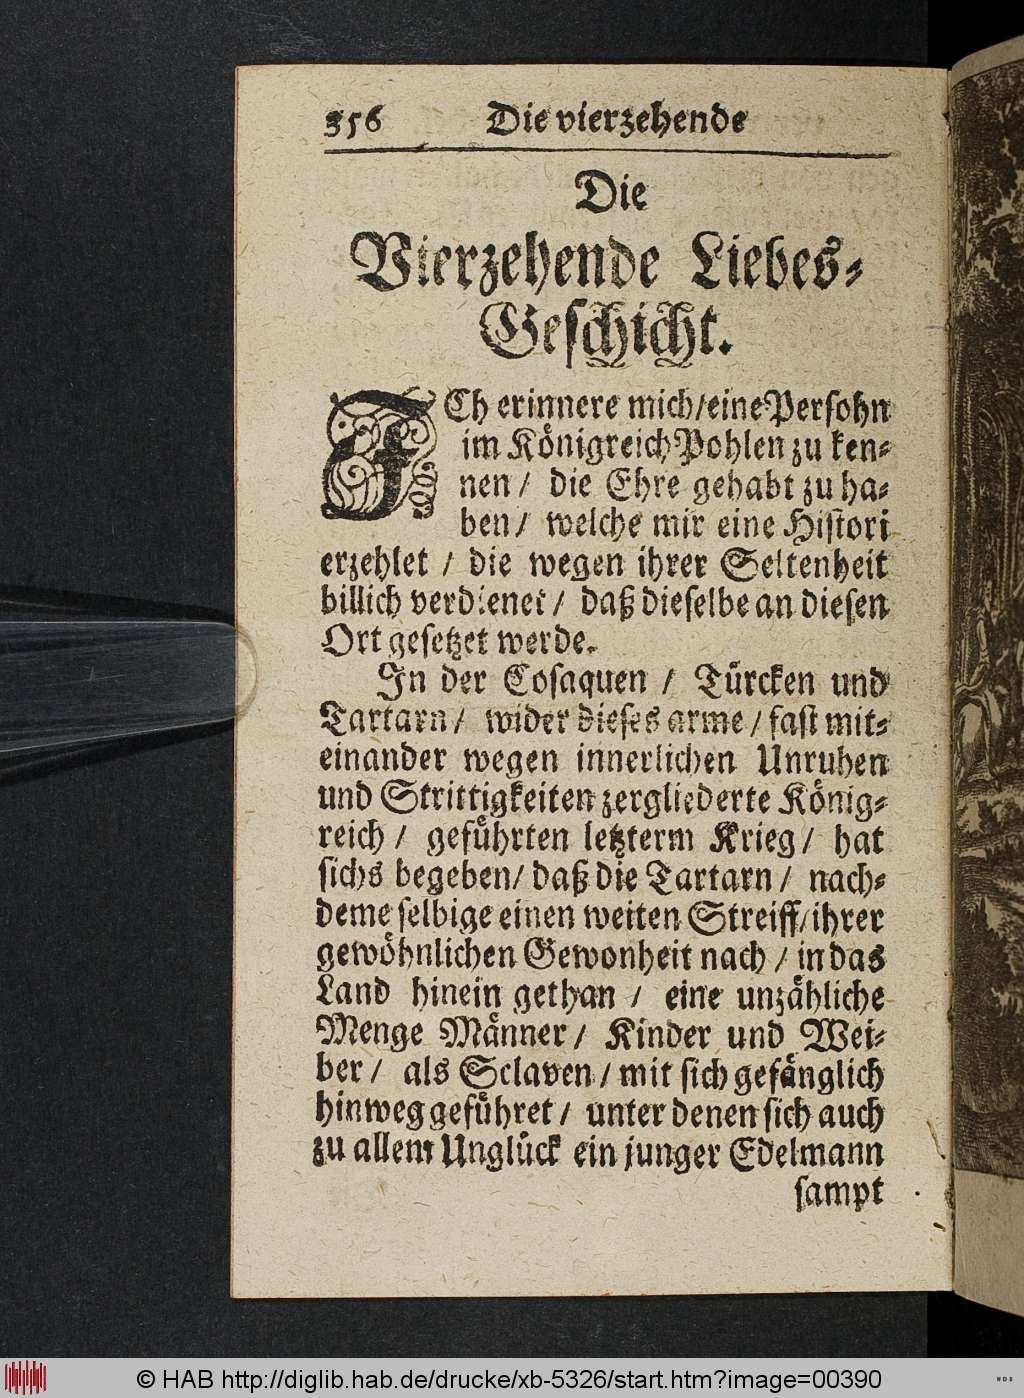 356 Die vierzehende
Die
Vierzehende Liebes-
Geschicht.
ICh erinnere mich/eine Persohn
im Königreich Pohlen zu ken-
nen / die Ehre gehabt zu ha-
ben / welche mir eine Histori
erzehlet / die wegen ihrer Seltenheit
billich verdienet / daß dieselbe an diesen
Ort gesetzet werde.
In der Cosaquen / Türcken und
Tartarn / wider dieses arme / fast mit-
einander wegen innerlichen Unruhen
und Strittigkeiten zergliederte König-
reich / geführten letzterm Krieg / hat
sichs begeben / daß die Tartarn / nach-
deme selbige einen weiten Streiff/ ihrer
gewöhnlichen Gewonheit nach / in das
Land hinein gethan / eine unzähliche
Menge Männer / Kinder und Wei-
ber / als Sclaven / mit sich gefänglich
hinweg geführet / unter denen sich auch
zu allem Unglück ein junger Edelmann
sampt
© HAB http://diglib.hab.de/drucke/xb-5326/start.htm?image=00390